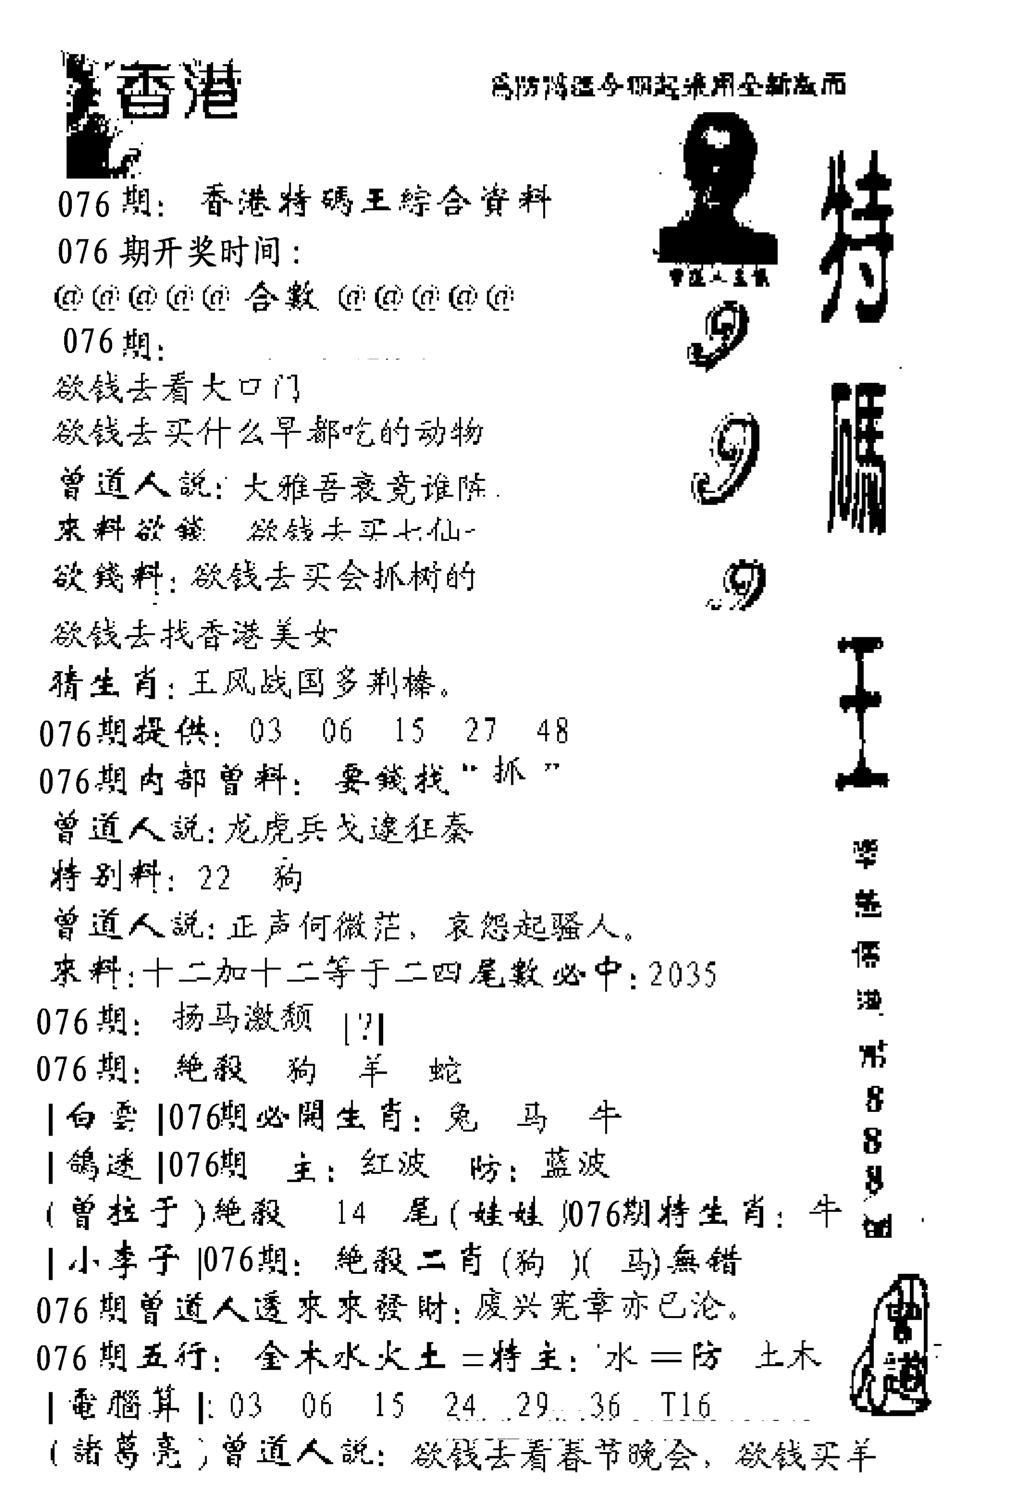 香港
076期：香港特碼王綜合資料
076 期开奖时间：
@@@@@ 合數 @@@@@
076期：
欲钱去看大口门
欲钱去买什么早都吃的动物
曾道人説：大雅吾衰竟谁陈
來料欲錢 欲钱去买七仙
欲錢料：欲钱去买会抓树的
欲钱去找香港美女
猜生肖：王风战国多荆榛。
076期提供：03 06 15 27 48
076期内部曾料：要錢找“抓”
曾道人説：龙虎兵戈逮狂秦
特别料：22 狗
曾道人説：正声何微茫，哀怨起骚人。
來料：十二加十二等于二四尾數必中：2035
076期：扬马激颓 [?]
076期：絶殺 狗 羊 蛇
|白雲|076期必開生肖：兔 马 牛
|鴿迷|076期 主：红波 防：蓝波
(曾拉于)絶殺 14 尾(娃娃)076期特生肖：牛
|小李子|076期：絶殺二肖(狗 )( 马)無錯
076期曾道人透來來發財：废兴宪章亦已沦。
076期五行：金木水火土=特主：水=防 土木
|電腦算|：03 06 15 24 29 36 T16
(諸葛亮)曾道人説：欲钱去看春节晚会，欲钱买羊
9
9
9
特
碼
王
港
888
曾道